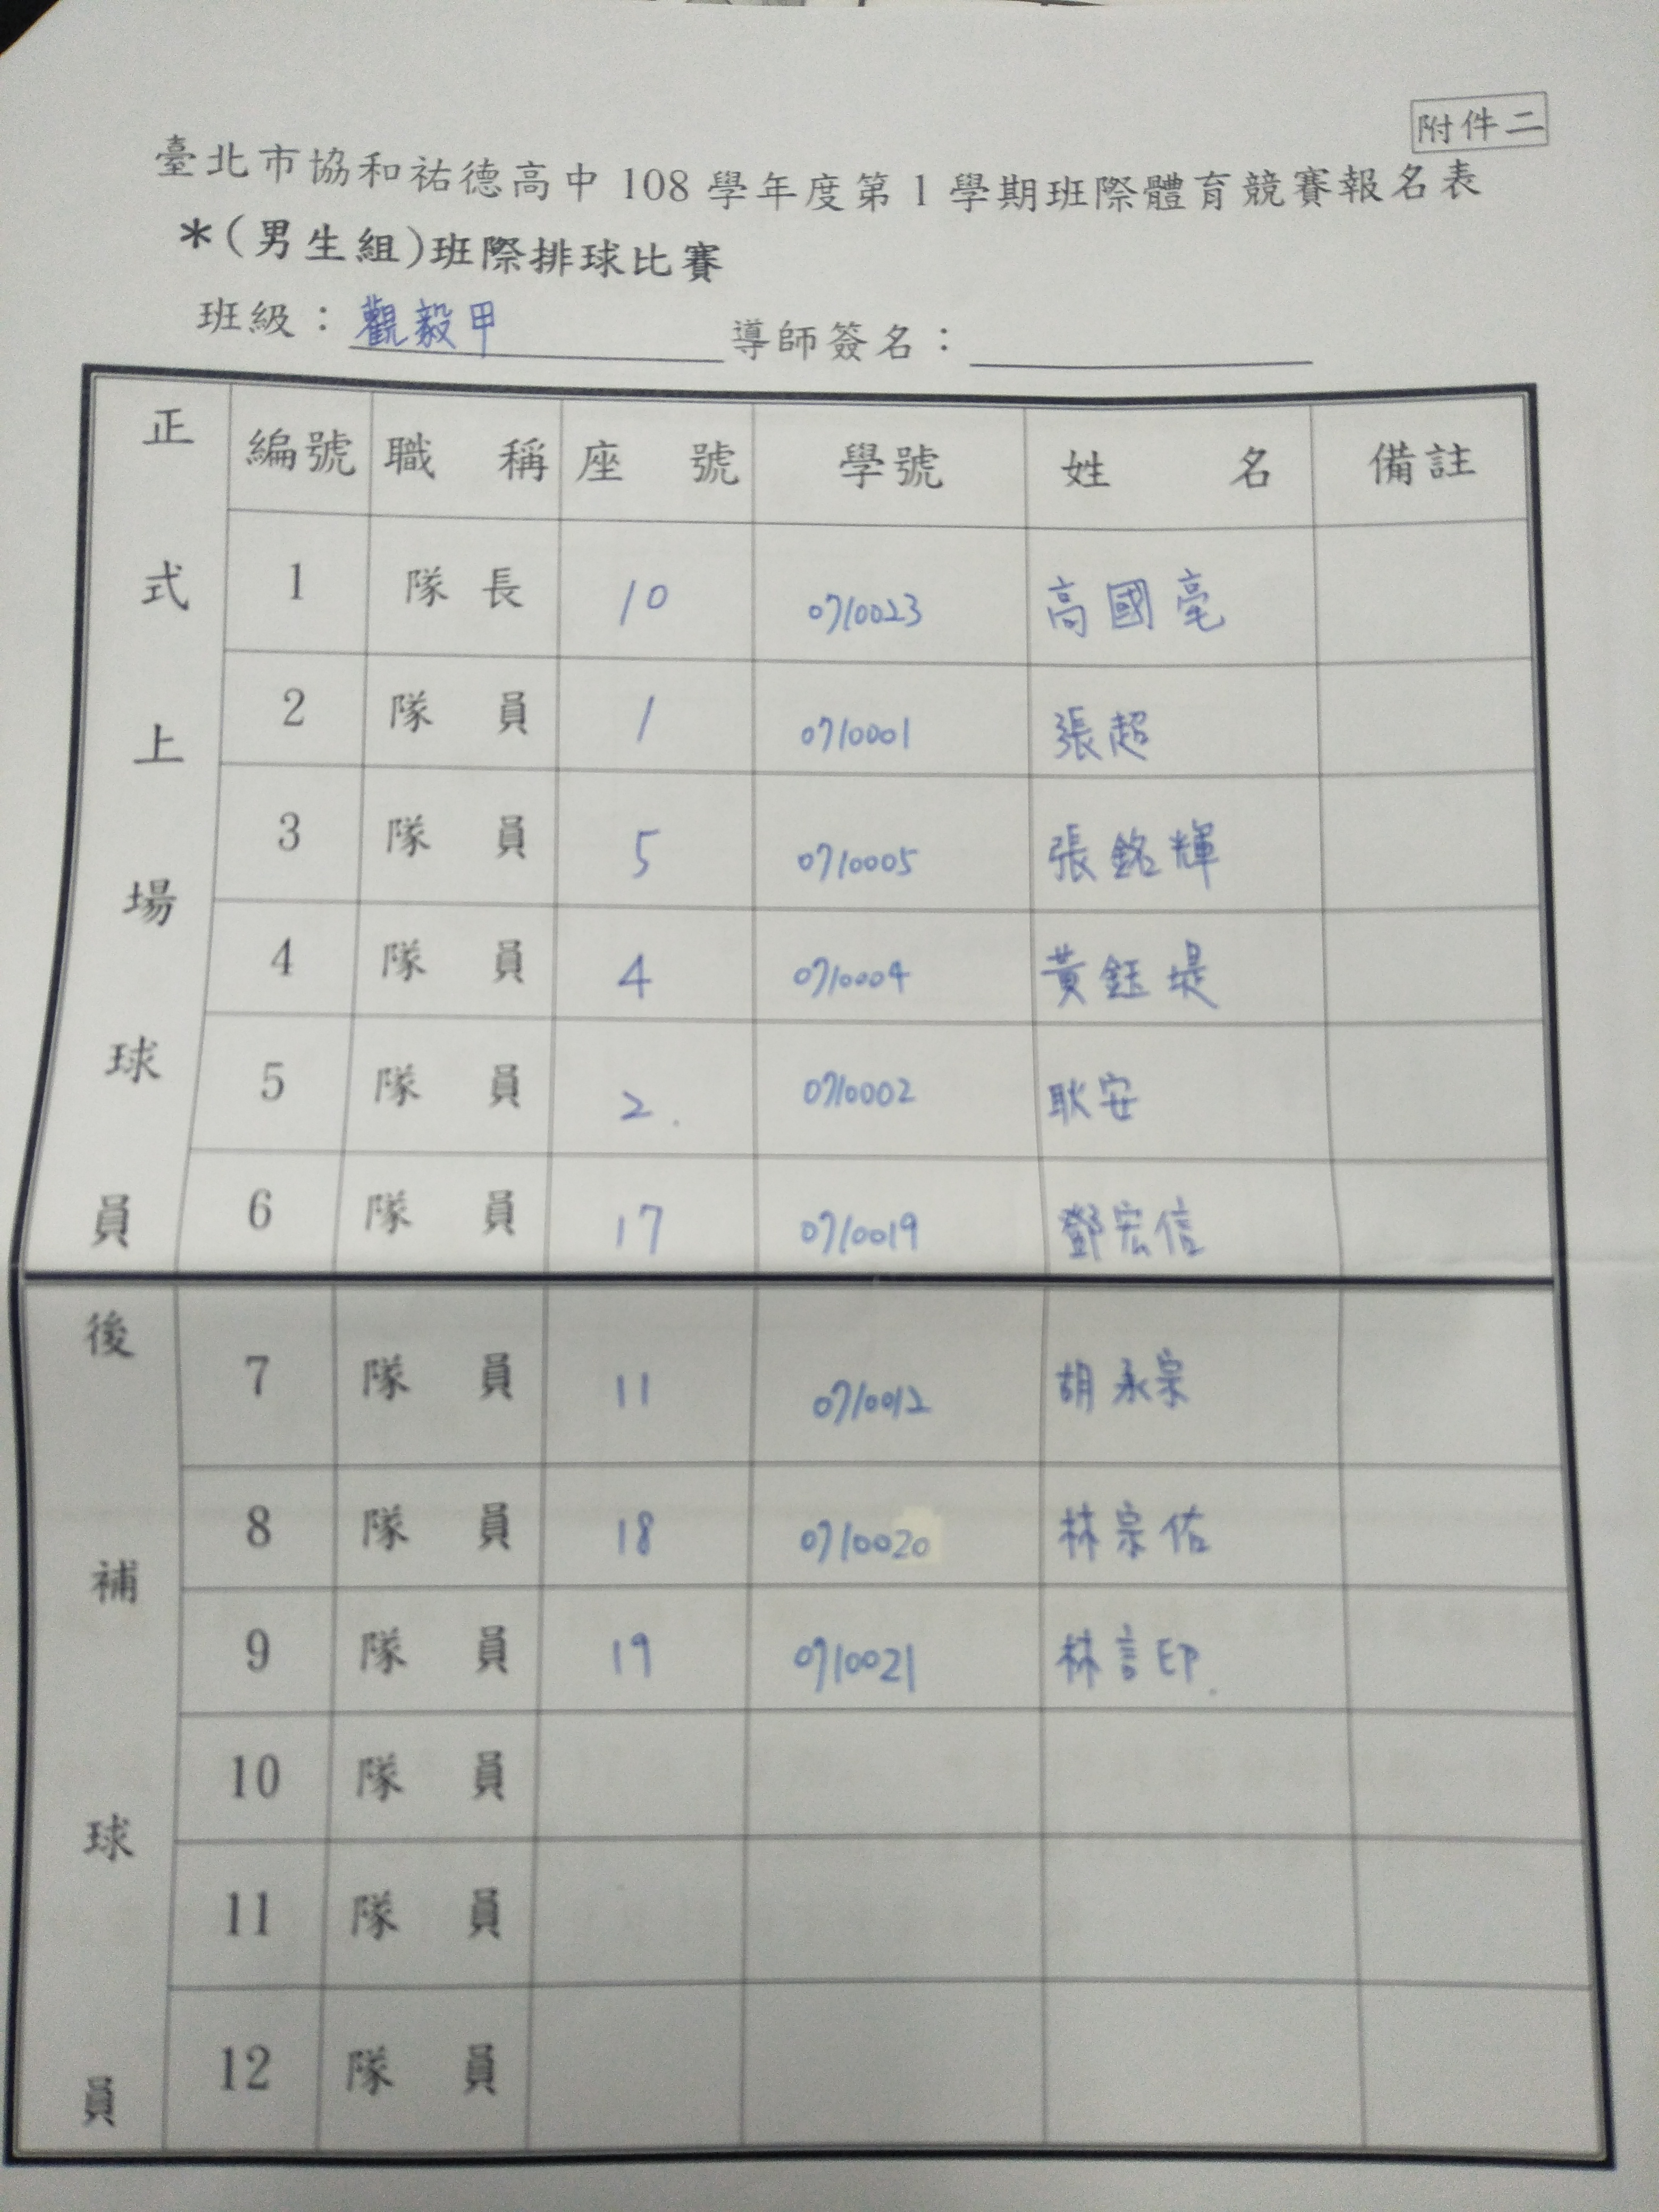 附件二
臺北市協和祐德高中 108 學年度第 1 學期班際體育競賽報名表
*(男生組)班際排球比賽
班級：觀毅甲 導師簽名：
正式上場球員
編號 職稱 座號 學號 姓名 備註
1 隊長 10 0710023 高國亳
2 隊員 1 0710001 張超
3 隊員 5 0710005 張銘輝
4 隊員 4 0710004 黃鈺堤
5 隊員 2 0710002 耿安
6 隊員 17 0710019 鄧宏信
後補球員
7 隊員 11 0710012 胡永宗
8 隊員 18 0710020 林宗佑
9 隊員 19 0710021 林言印
10 隊員
11 隊員
12 隊員